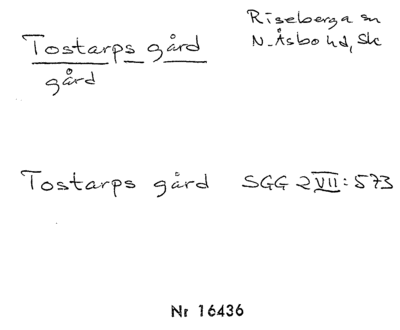 Tostarps gård
gård
Riseberga sn
N. Åsbo hd, Sk
Tostarps gård SGG 2 VII: 573
Nr 16436